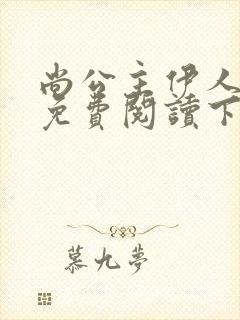 尚公主伊人
免費閱讀下
慕九夢